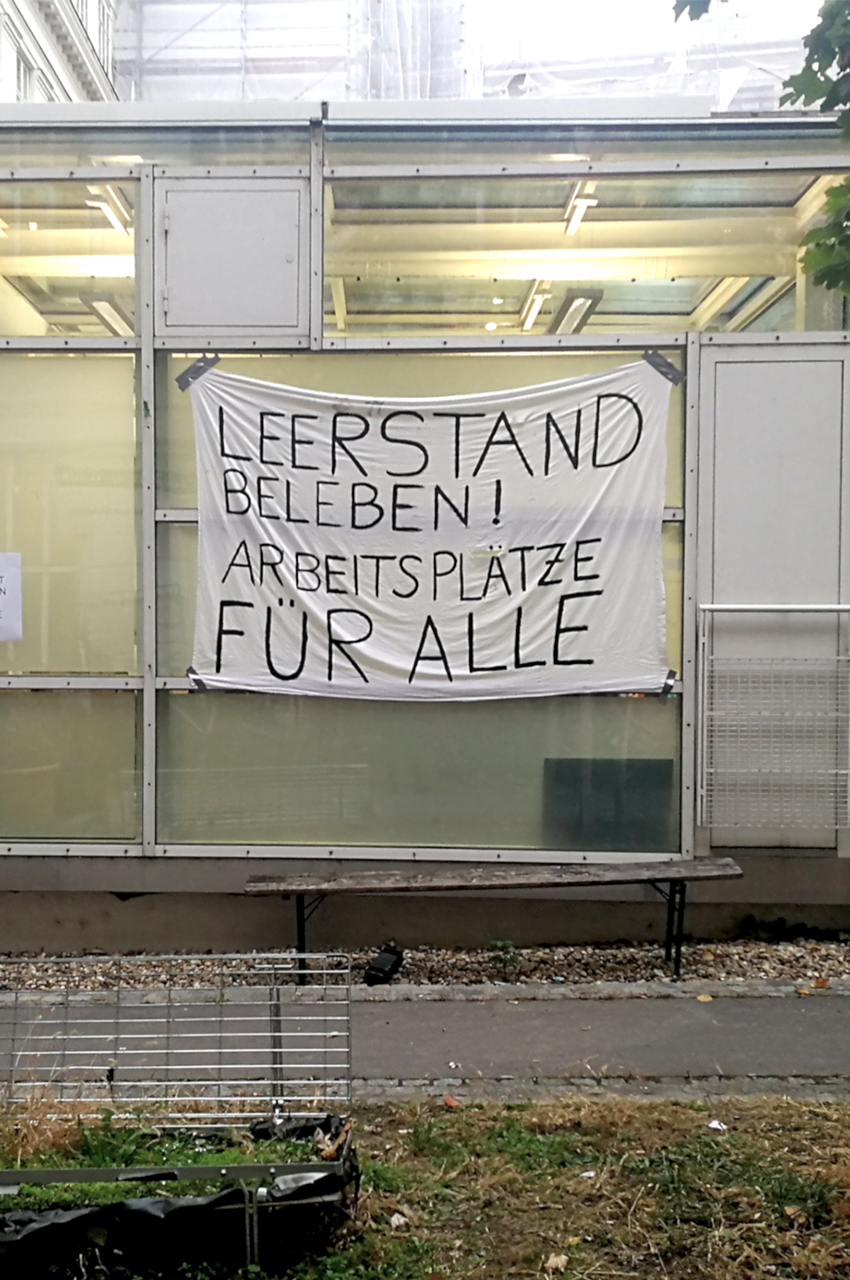 LEERSTAND
BELEBEN!
ARBEITSPLÄTZE
FÜR ALLE